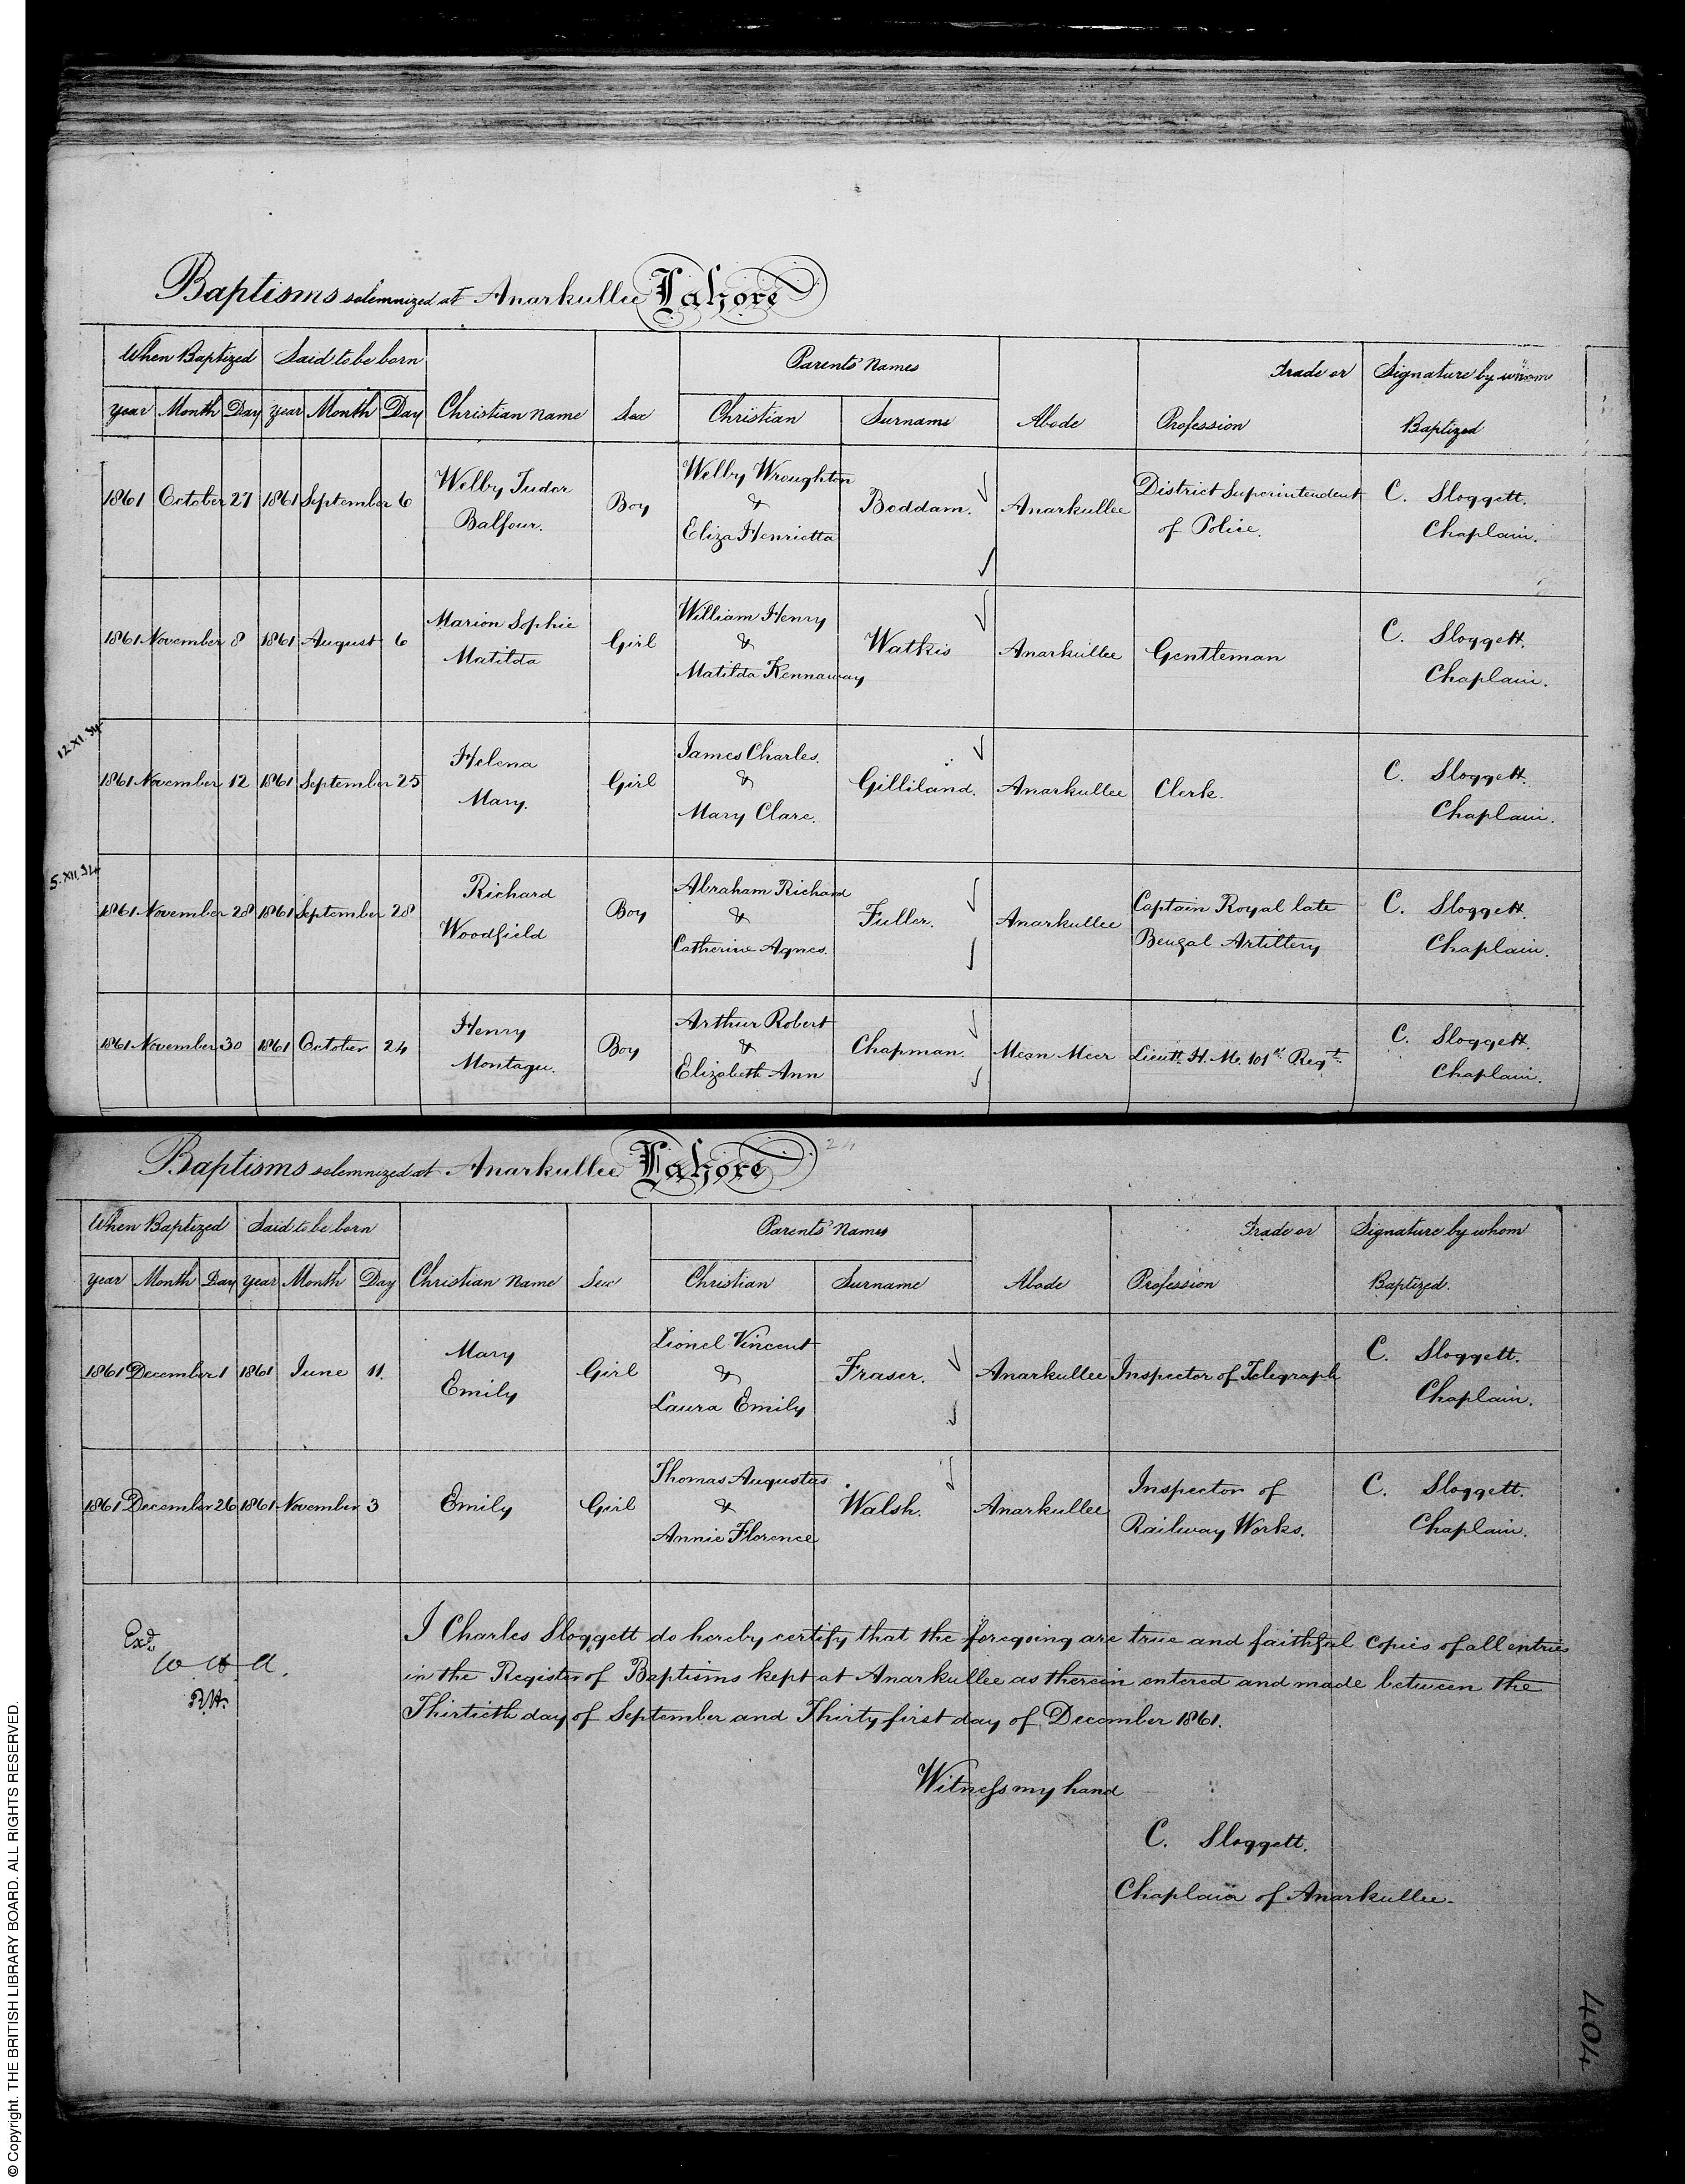 Baptisms solemnized at Anarkullee Lahore
When Baptized Said to be born Parents' Names Trade or Signature by whom
Year Month Day Year Month Day Christian Name Sex Christian Surname Abode Profession Baptized
1861 October 27 1861 September 6 Welby Tudor Balfour. Boy Welby Wroughton & Eliza Henrietta Boddam. Anarkullee District Superintendent of Police. C. Sloggett. Chaplain.
1861 November 8 1861 August 6 Marion Sophie Matilda Girl William Henry & Matilda Kennaway Watkis Anarkullee Gentleman C. Sloggett. Chaplain.
12.XI.34
1861 November 12 1861 September 25 Helena Mary. Girl James Charles. & Mary Clare. Gilliland. Anarkullee Clerk. C. Sloggett. Chaplain.
5.XII.34
1861 November 28 1861 September 28 Richard Woodfield Boy Abraham Richard & Catherine Agnes. Fuller. Anarkullee Captain Royal late Bengal Artillery C. Sloggett. Chaplain.
1861 November 30 1861 October 24 Henry Montagu. Boy Arthur Robert & Elizabeth Ann Chapman. Mean Meer Lieutt. H. M. 101st Regt. C. Sloggett. Chaplain.
24
Baptisms solemnized at Anarkullee Lahore
When Baptized Said to be born Parents' Names Trade or Signature by whom
Year Month Day Year Month Day Christian Name Sex Christian Surname Abode Profession Baptized.
1861 December 1 1861 June 11. Mary Emily Girl Lionel Vincent & Laura Emily Fraser. Anarkullee Inspector of Telegraph C. Sloggett. Chaplain.
1861 December 26 1861 November 3 Emily Girl Thomas Augustus & Annie Florence Walsh. Anarkullee Inspector of Railway Works. C. Sloggett. Chaplain.
I Charles Sloggett do hereby certify that the foregoing are true and faithful Copies of all entries
in the Register of Baptisms kept at Anarkullee as therein entered and made between the
Thirtieth day of September and Thirty first day of December 1861.
Exd.
Witness my hand
C. Sloggett.
Chaplain of Anarkullee.
404
© Copyright. THE BRITISH LIBRARY BOARD. ALL RIGHTS RESERVED.